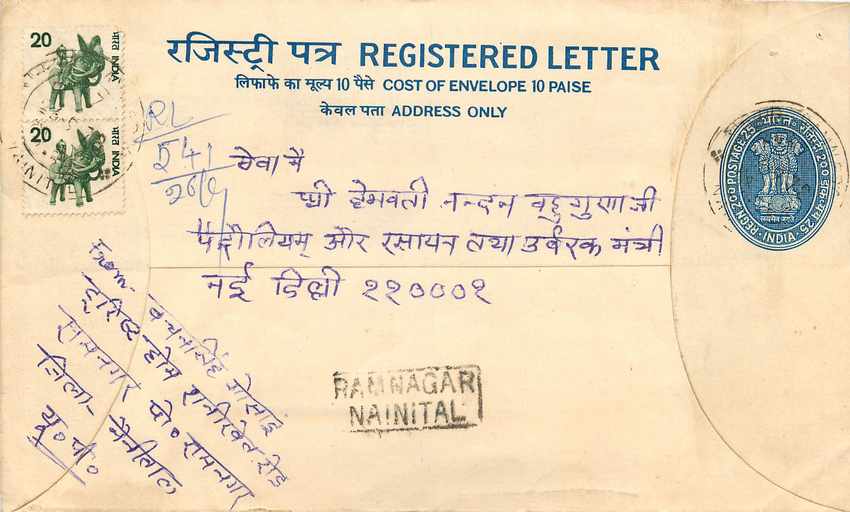 20
भारत INDIA
20
भारत INDIA
रजिस्ट्री पत्र REGISTERED LETTER
लिफाफे का मूल्य 10 पैसे COST OF ENVELOPE 10 PAISE
केवल पता ADDRESS ONLY
RL
541
26/6
सेवा में
श्री हेमवती नन्दन बहुगुणा जी
पेट्रोलियम् और रसायन तथा उर्वरक मंत्री
नई दिल्ली ११०००१
From
बचनसिंह गोसाईं
टूरिस्ट होम रानीखेत रोड
रामनगर पो० रामनगर
जिला- नैनीताल
यू० पी०
RAMNAGAR
NAINITAL
REGN. 200 POSTAGE 25 भारत रजिस्ट्री 200 डाक-व्यय 25
INDIA
सत्यमेव जयते